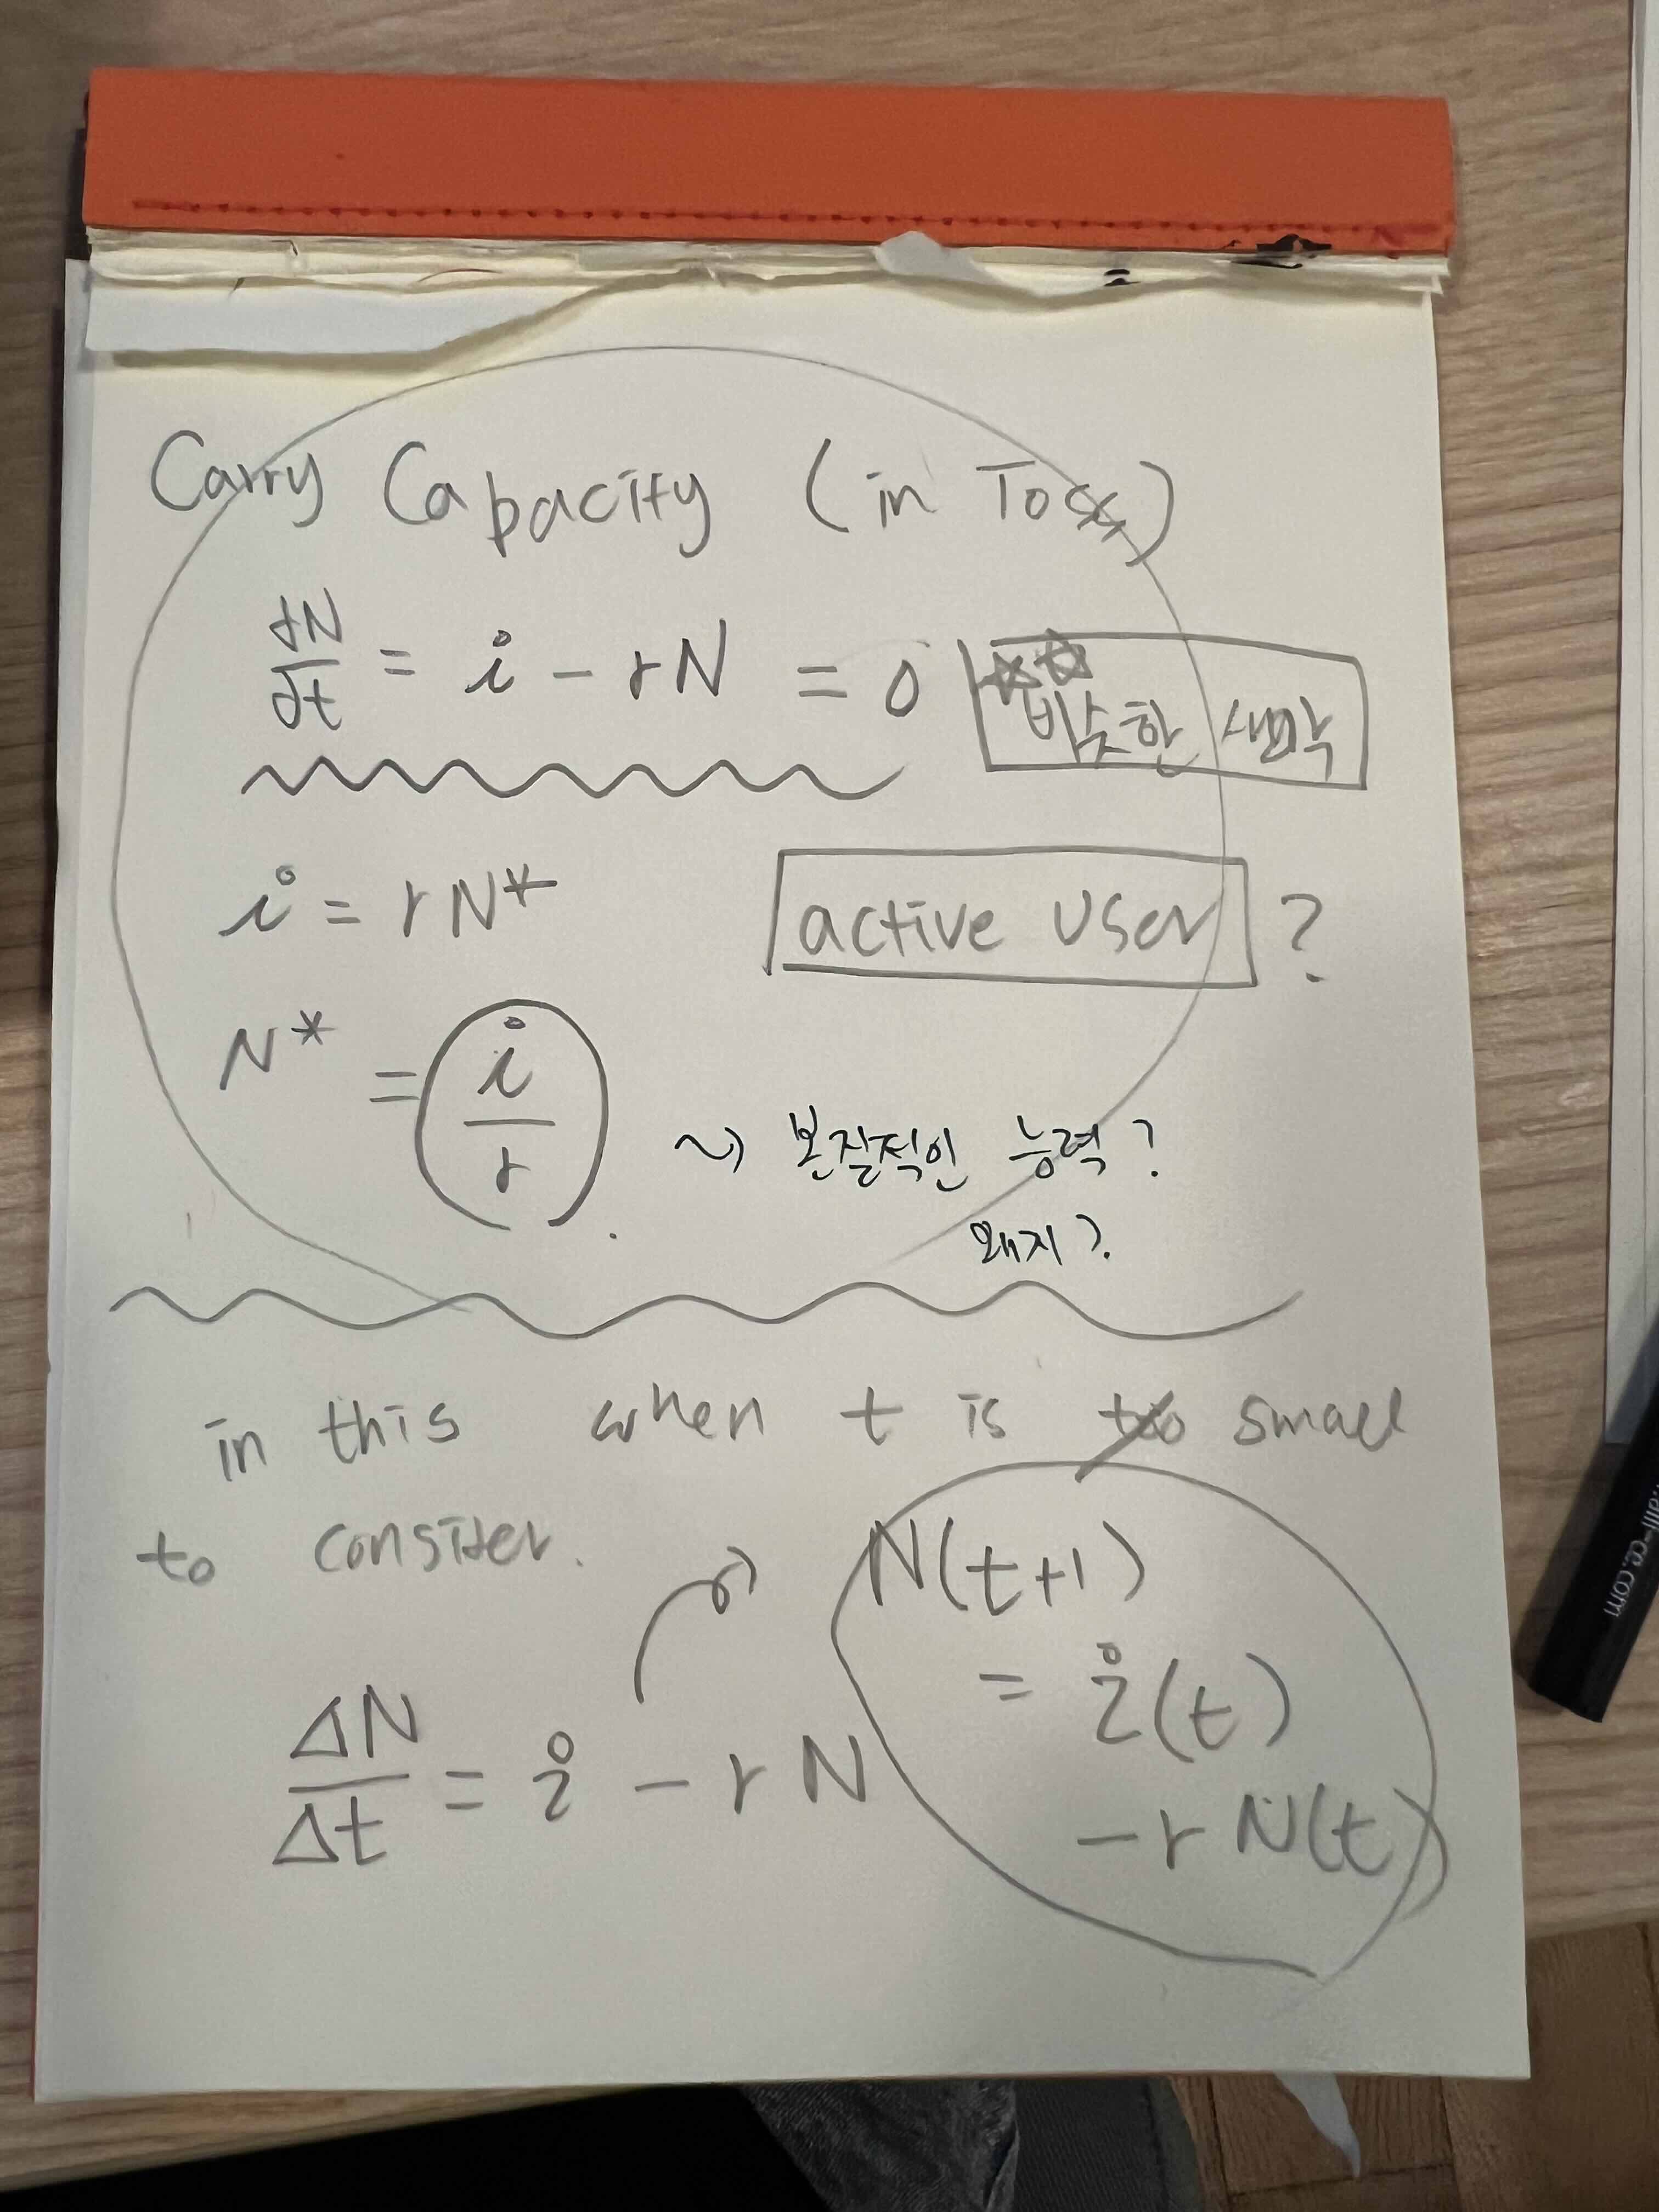 Carry Capacity (in Toss)
dN/dt = i - rN = 0
비슷한 생각
i = rN*
active user ?
N* = i/r . ~> 본질적인 능력?
왜지?
in this when t is small
to consider.
N(t+1)
= i(t)
- r N(t)
ΔN/Δt = i - rN